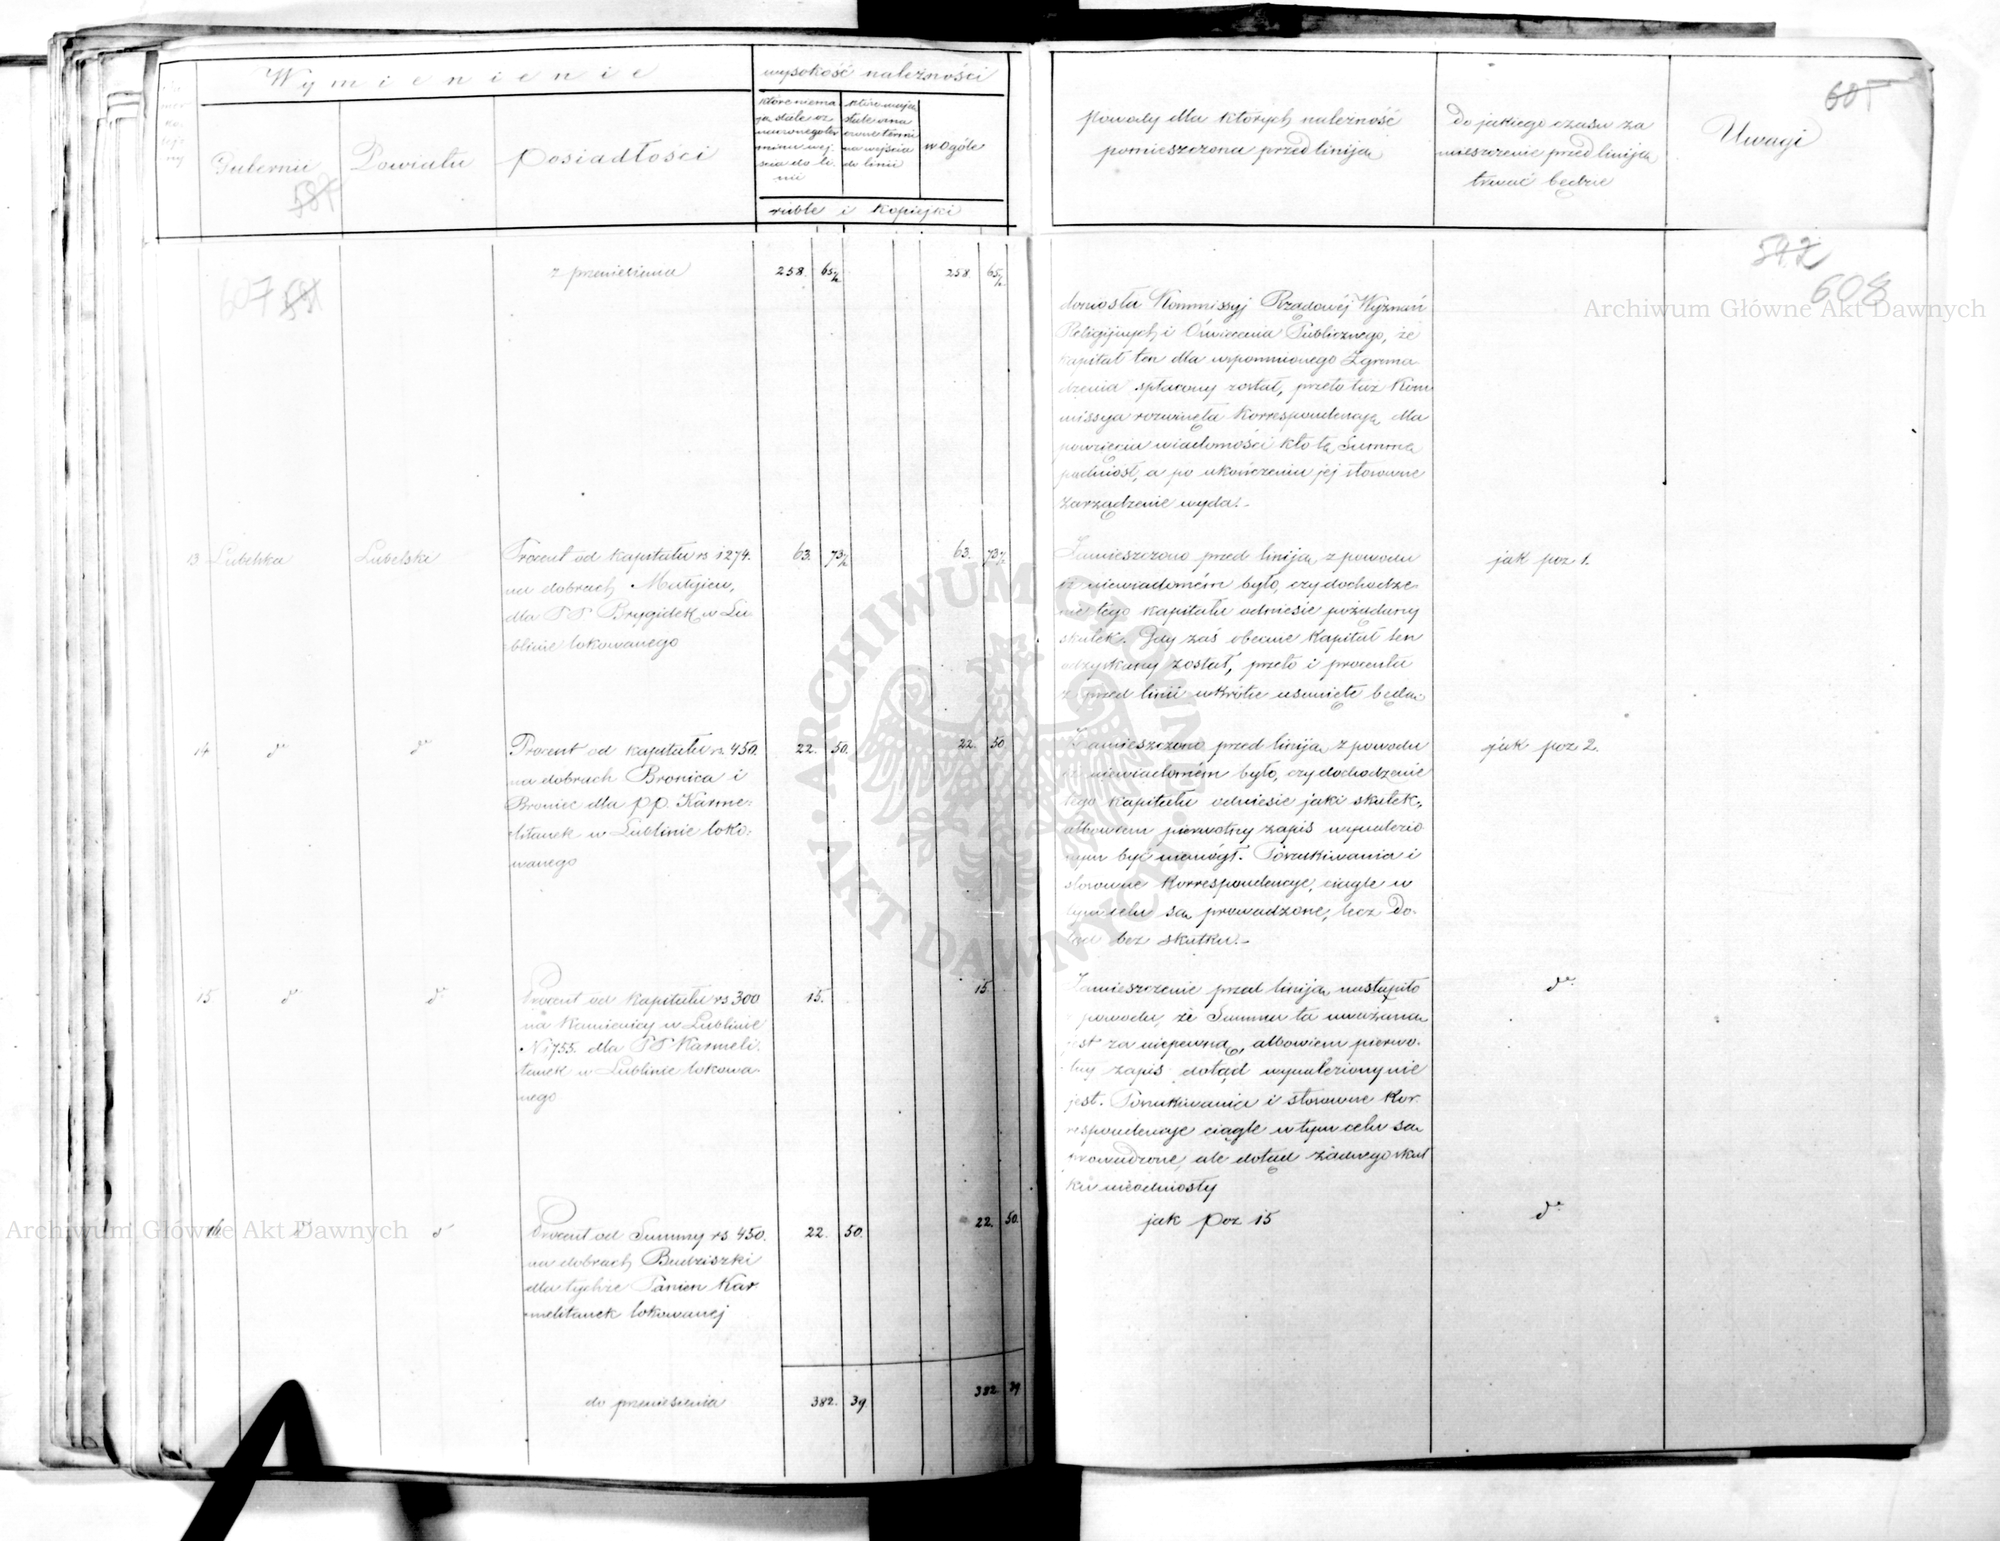 Wymienienie
wysokość należności
Gubernii
Powiatu
posiadłości
które niema
ją stale oz
naczonego ter
minu wej
ścia do li
nii
które mają
stale ozna
do linii
wogóle
ruble i kopiejki
powody dla których należność
pomieszczona przed liniją
do jakiego czasu za
mieszczenie przed liniją
trwać będzie
Uwagi
605
587
607 591
592
608
z przeniesienia 258. 65½ 258 65½
doniosła Kommissyj Rządowéj Wyznań
Religijnych i Oświecenia Publicznego, że
kapitał ten dla wspomnionego Zgroma
dzenia spłacony został, przeto taż Kom
missya rozwinęła korrespondencją dla
powzięcia wiadomości kto tę Summę
podniósł, a po ukończeniu jej stosowne
zarządzenie wyda.
13 Lubelska Lubelski Procent od kapitału rs 1274. 63. 73½ 63. 73½
na dobrach Matyjew,
dla PP Brygidek w Lu
blinie lokowanego
Zamieszczono przed liniją z powodu
iż niewiadomém było, czy dochodze
nie tego kapitału odniesie pożądany
skutek. Gdy zaś obecnie kapitał ten
odzyskany został, przeto i procenta
z przed linii wkrótce usunięte będą
jak poz 1.
14 do do Procent od kapitału rs. 450. 22. 50. 22. 50
na dobrach Bronica i
Broniec dla pp. Karme-
litanek w Lublinie loko-
wanego
Zamieszczono przed liniją z powodu
iż niewiadomém było, czy dochodzenie
tego kapitału odniesie jaki skutek,
albowiem pierwotny zapis wynalezio
nym być niemógł. Poszukiwania i
stosowne korrespondencye, ciągle w
tym celu są prowadzone, lecz do-
tąd bez skutku.
jak poz 2.
15 do do Procent od kapitału rs 300 15. 15.
na kamienicy w Lublinie
N 1755. dla PP Karmeli-
tanek w Lublinie lokowa-
nego
Zamieszczenie przed liniją nastąpiło
z powodu, że Summa ta uważaną
jest za niepewną, albowiem pierwo-
tny zapis dotąd wynaleziony nie
jest. Poszukiwania i stosowne kor-
respondencye ciągle w tym celu są
prowadzone, ale dotąd żadnego skut
ku nieodniosły
do
16 do do Procent od Summy rs 450. 22. 50. 22. 50.
na dobrach Budziszki
dla tychże Panien Kar
melitanek lokowanej
jak poz 15
do
do przeniesienia 382. 39. 382 39
Archiwum Główne Akt Dawnych
Archiwum Główne Akt Dawnych